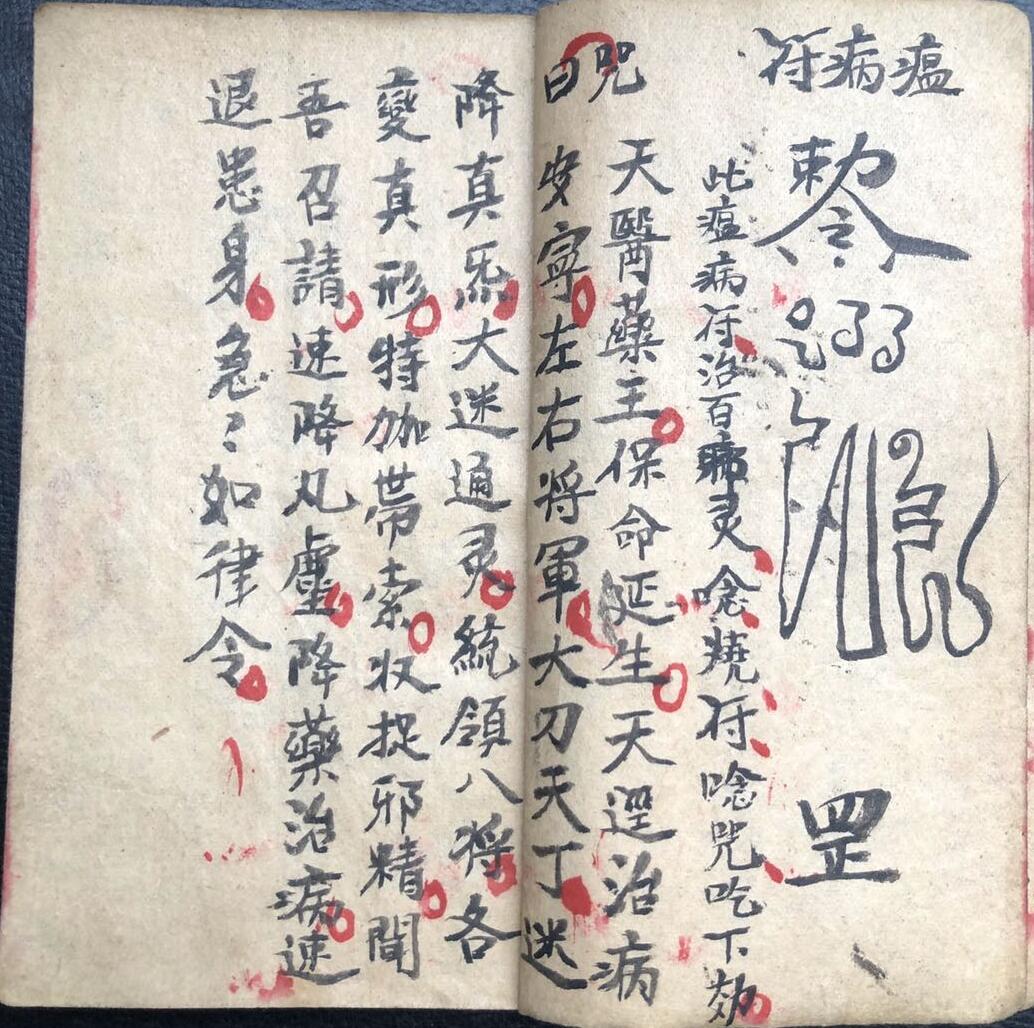 瘟病符
敕令
罡
此瘟病符治百病灵念燒符唸咒吃下効
咒曰
天醫藥王保命延生天逕治病
安寧左右将軍大刀天丁迷
降真炁大迷通灵統領八将各
變真形特伽帶索收捉邪精聞
吾召請速降凡塵降藥治病速
退患身急〻如律令